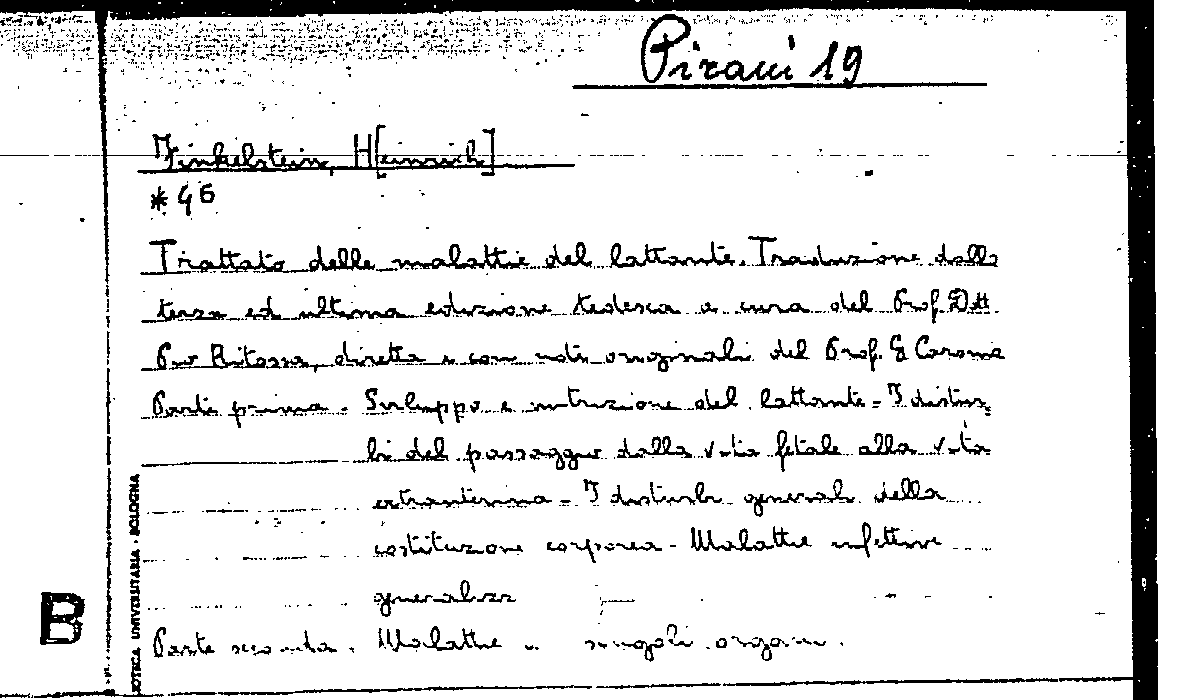 Pirani 19
Finkelstein, H[einrich]
* 46
Trattato delle malattie del lattante. Traduzione dalla
terza ed ultima edizione tedesca a cura del Prof. Dott
Pio Ritossa, diretta e con note originali del Prof. G Caronia
Parte prima. Sviluppo e nutrizione del lattante - I distur=
bi del passaggio dalla vita fetale alla vita
extrauterina - I disturbi generali della
costituzione corporea - Malattie infettive
generalizz
Parte seconda. Malattie singoli organi.
B
OTECA UNIVERSITARIA - BOLOGNA